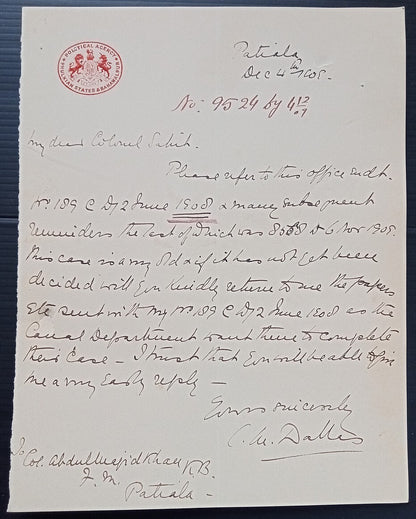 POLITICAL AGENCY
PHULKIAN STATES & BAHAWALPUR
Patiala
Dec 4th 1909.
No: 9524 by 4/12/09
My dear Colonel Sahib.
Please refer to this office endt.
No. 189 C D/ 2 June 1908 & many subsequent
reminders the last of which was d/ 6 Nov 1909.
This case is a very old & if it has not yet been
decided will you kindly return to me the papers
etc sent with my No. 189 C D/ 2 June 1908 as the
Canal Department want them to complete
their case - I trust that you will be able to give
me a very early reply -
Yours sincerely
C. M. Dallas
To
Col. Abdul Majid Khan K.B.
F. M.
Patiala -